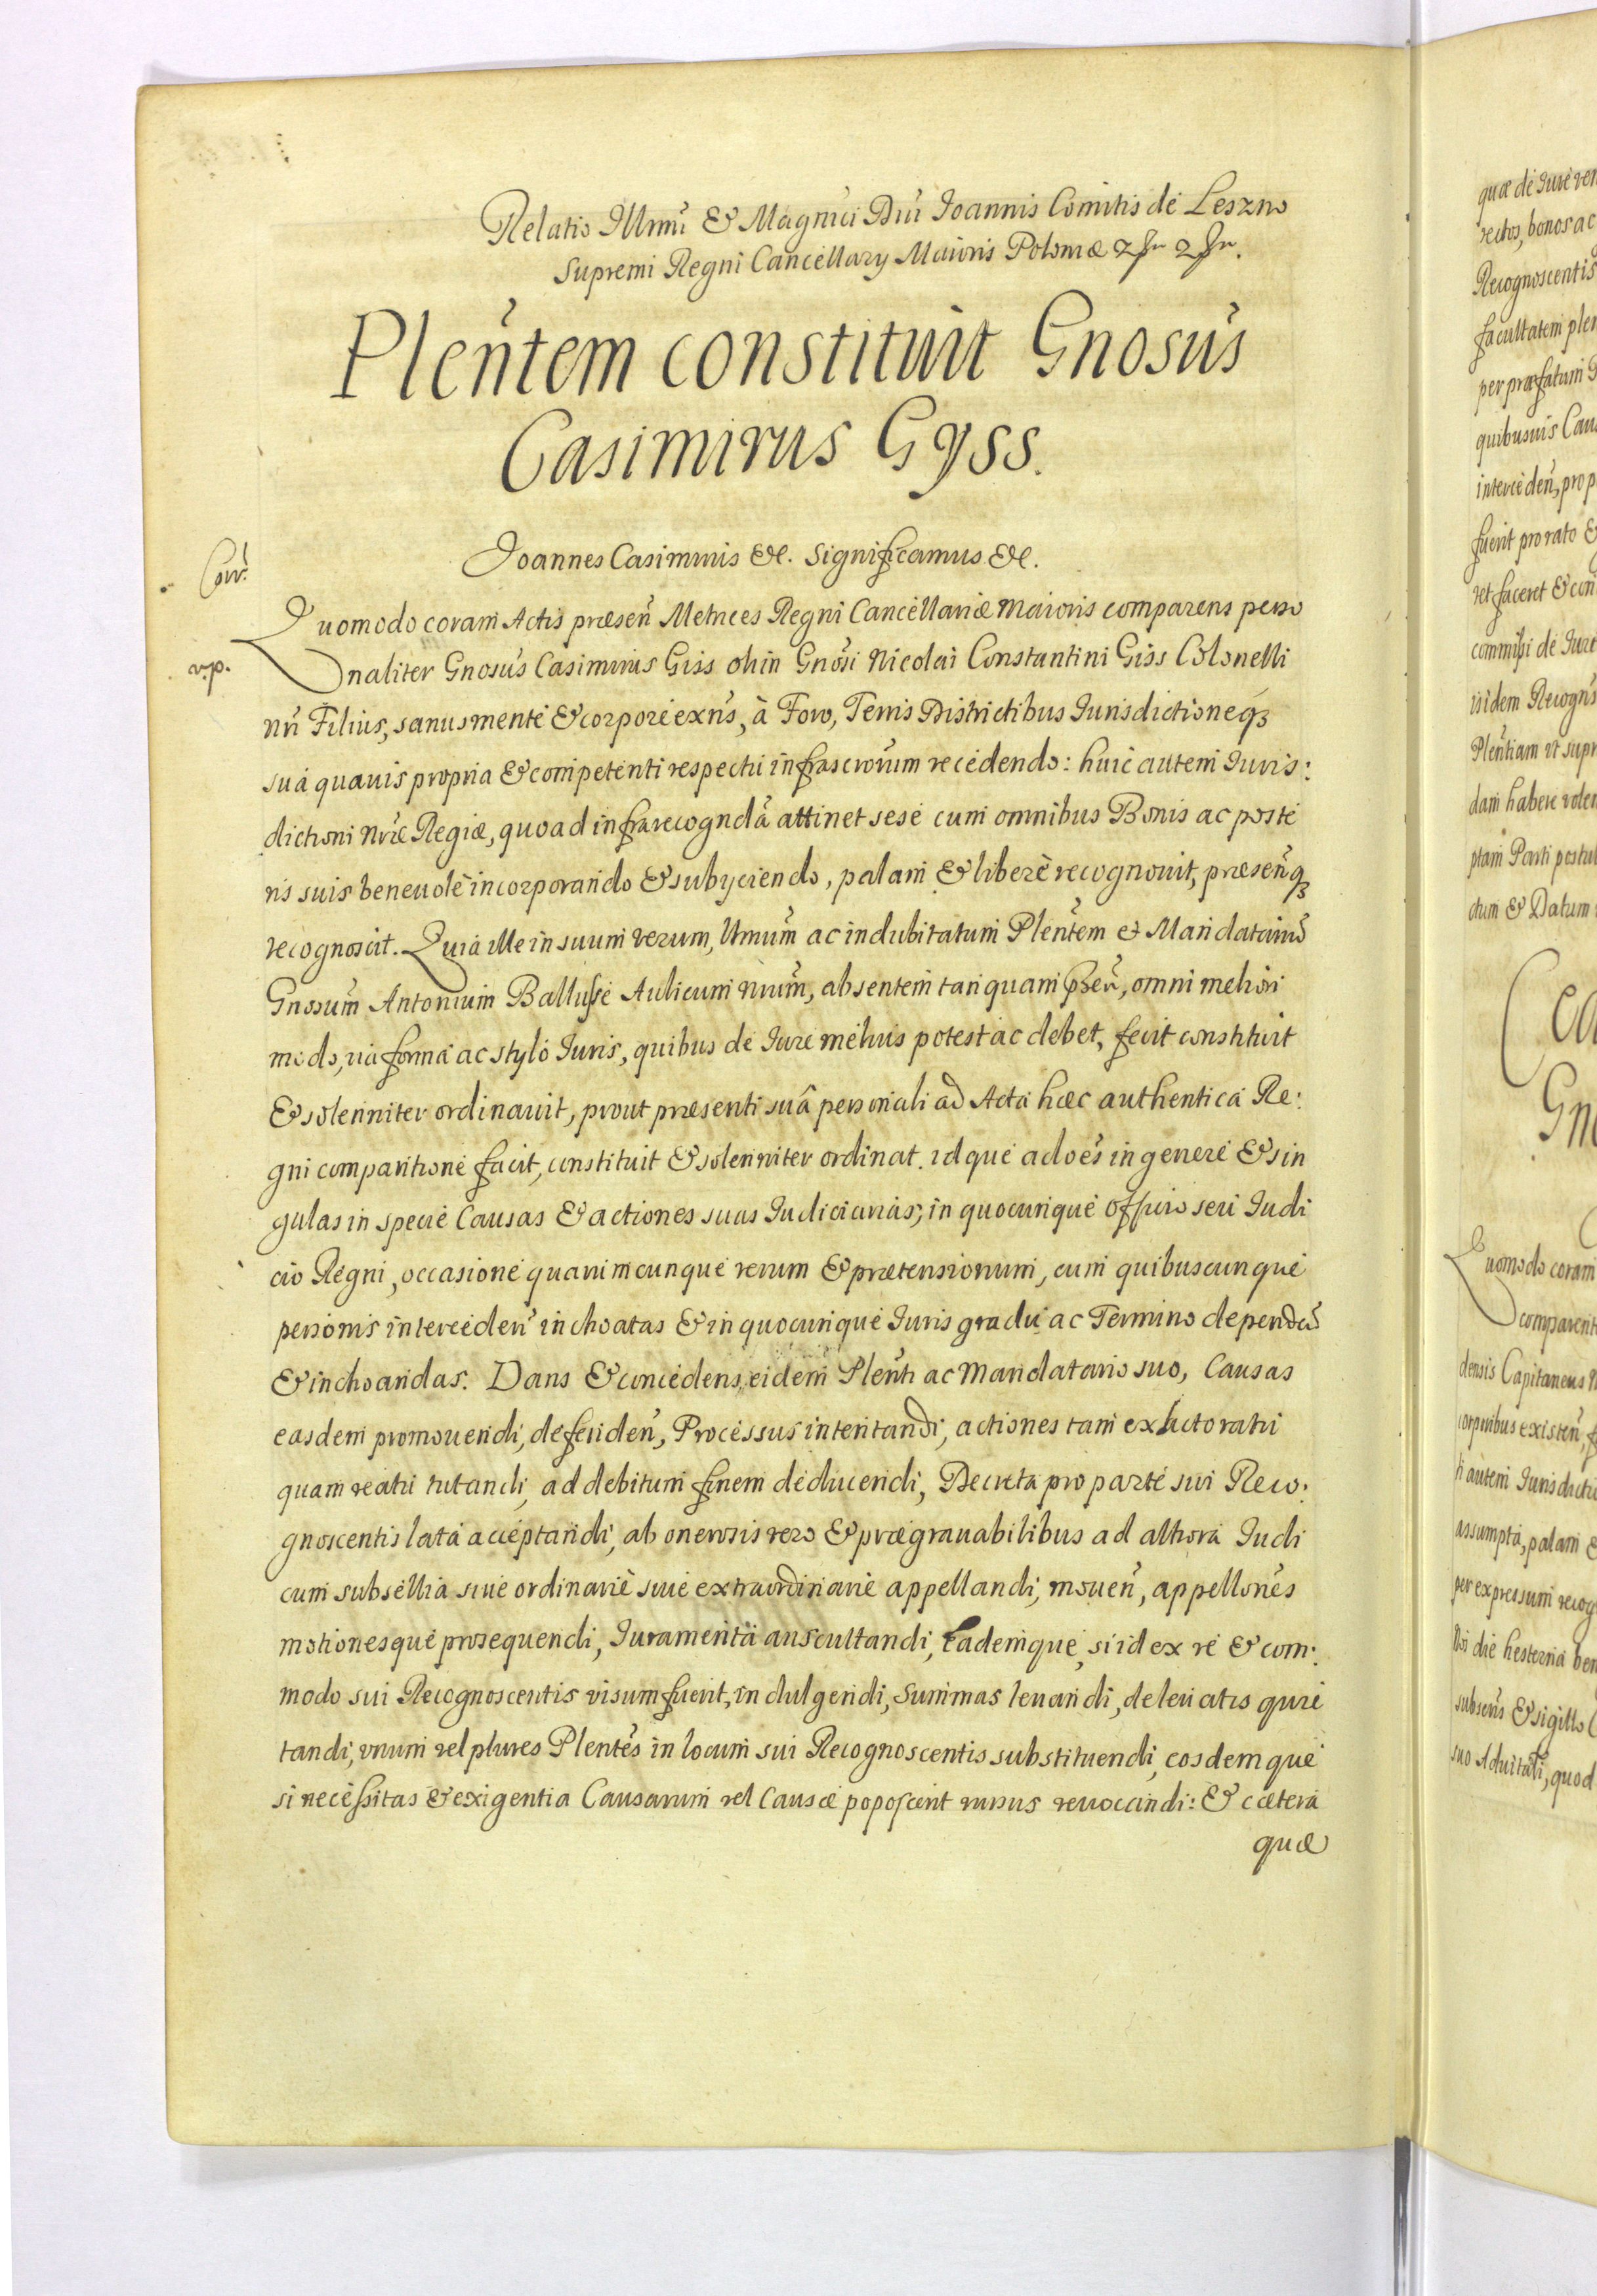 Relatio Illrmi & Magnici Dni Ioannis Comitis de Leszno
Supremi Regni Cancellary Maioris Poloniæ
Plentem constituit Gnosus
Casimirus Gyss.
Ioannes Casimirus &c. Significamus &c.
Corr:
Quomodo coram Actis præsen Metrices Regni Cancellariæ Maioris comparens perso
v.p.
naliter Gnosus Casimirus Giss olim Gnosi Nicolai Constantini Giss Colonelli
nri Filius, sanus mente & corpore exns, à Foro, Terris Districtibus Iurisdictioneq3
sua quauis propria & competenti respectu infrascrorum recedendo: huic autem Iuris:
dictioni nræ Regiæ, quoad infrarecognda attinet sese cum omnibus Bonis ac poste
ris suis beneuole incorporando & subyciendo, palam & libere recognouit, præsenq3
recognoscit. Quia ille in suum verum, ltmum ac indubitatum Plentem et Mandatariu
Gnosum Antonium Ballusse Aulicum nrum, absentem tanquam præn, omni meliori
modo, via forma ac stylo Iuris, quibus de Iure melius potest ac debet, fecit constituit
& solenniter ordinauit, prout præsenti suâ personali ad Acta hæc authentica Re:
gni comparitione facit, constituit & solenniter ordinat. idque ad oes in genere & sin
gulas in specie Causas & actiones suas Iudiciarias, in quocunque officio seu Iudi
cio Regni, occasione quarumcunque rerum & prætensionum, cum quibuscunque
personis interceden inchoatas & in quocunque Iuris gradu ac Termino dependen
& inchoandas. Dans & concedens eidem Plenti ac Mandatario suo, Causas
easdem promouendi, defenden, Processus intentandi, actiones tam ex Actoratu
quam reatu tutandi, ad debitum finem deducendi, Decreta pro parte sui Reco:
gnoscentis lata acceptandi, ab onerosis vero & prægrauabilibus ad altiora Iudi
cum subsellia siue ordinarie siue extraordinarie appellandi, mouen, appellones
motionesque prosequendi, Iuramenta auscultandi, eademque, si id ex re & com:
modo sui Recognoscentis visum fuerit, indulgendi, Summas leuandi, de leuatis quie
tandi, vnum vel plures Plentes in locum sui Recognoscentis substituendi, eosdemque
si necessitas & exigentia Causarum vel Causæ poposcerit rursus reuocandi: & cætera
quæ
quæ de Iure
rectos, bonos ac
Recognoscentis
facultatem
per præfatum
quibusuis
interceden, pro
fuerit pro rato &
vel faceret &
commissi de Iure
isidem Recogns
Plentiam vt
dam habere
ptam Parti
ctum & Datum
Quomodo coram
densis Capitaneus
corporibus existen,
ti autem
assumpta, palam &
per expressum
die hesterna
subscris & sigillo
suo quod